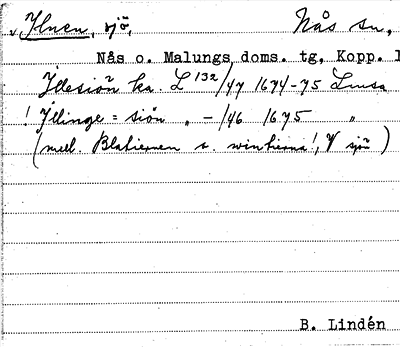 Ylnen, sjö, Nås sn,
Nås o. Malungs doms. tg, Kopp. l
Yllesiön ka. L 132/47 1674-75 Lmsa
! Yllinge = siön " - /46 1675 "
(mell. Blatiernen o. wintierne!, V sjön)
B. Lindén